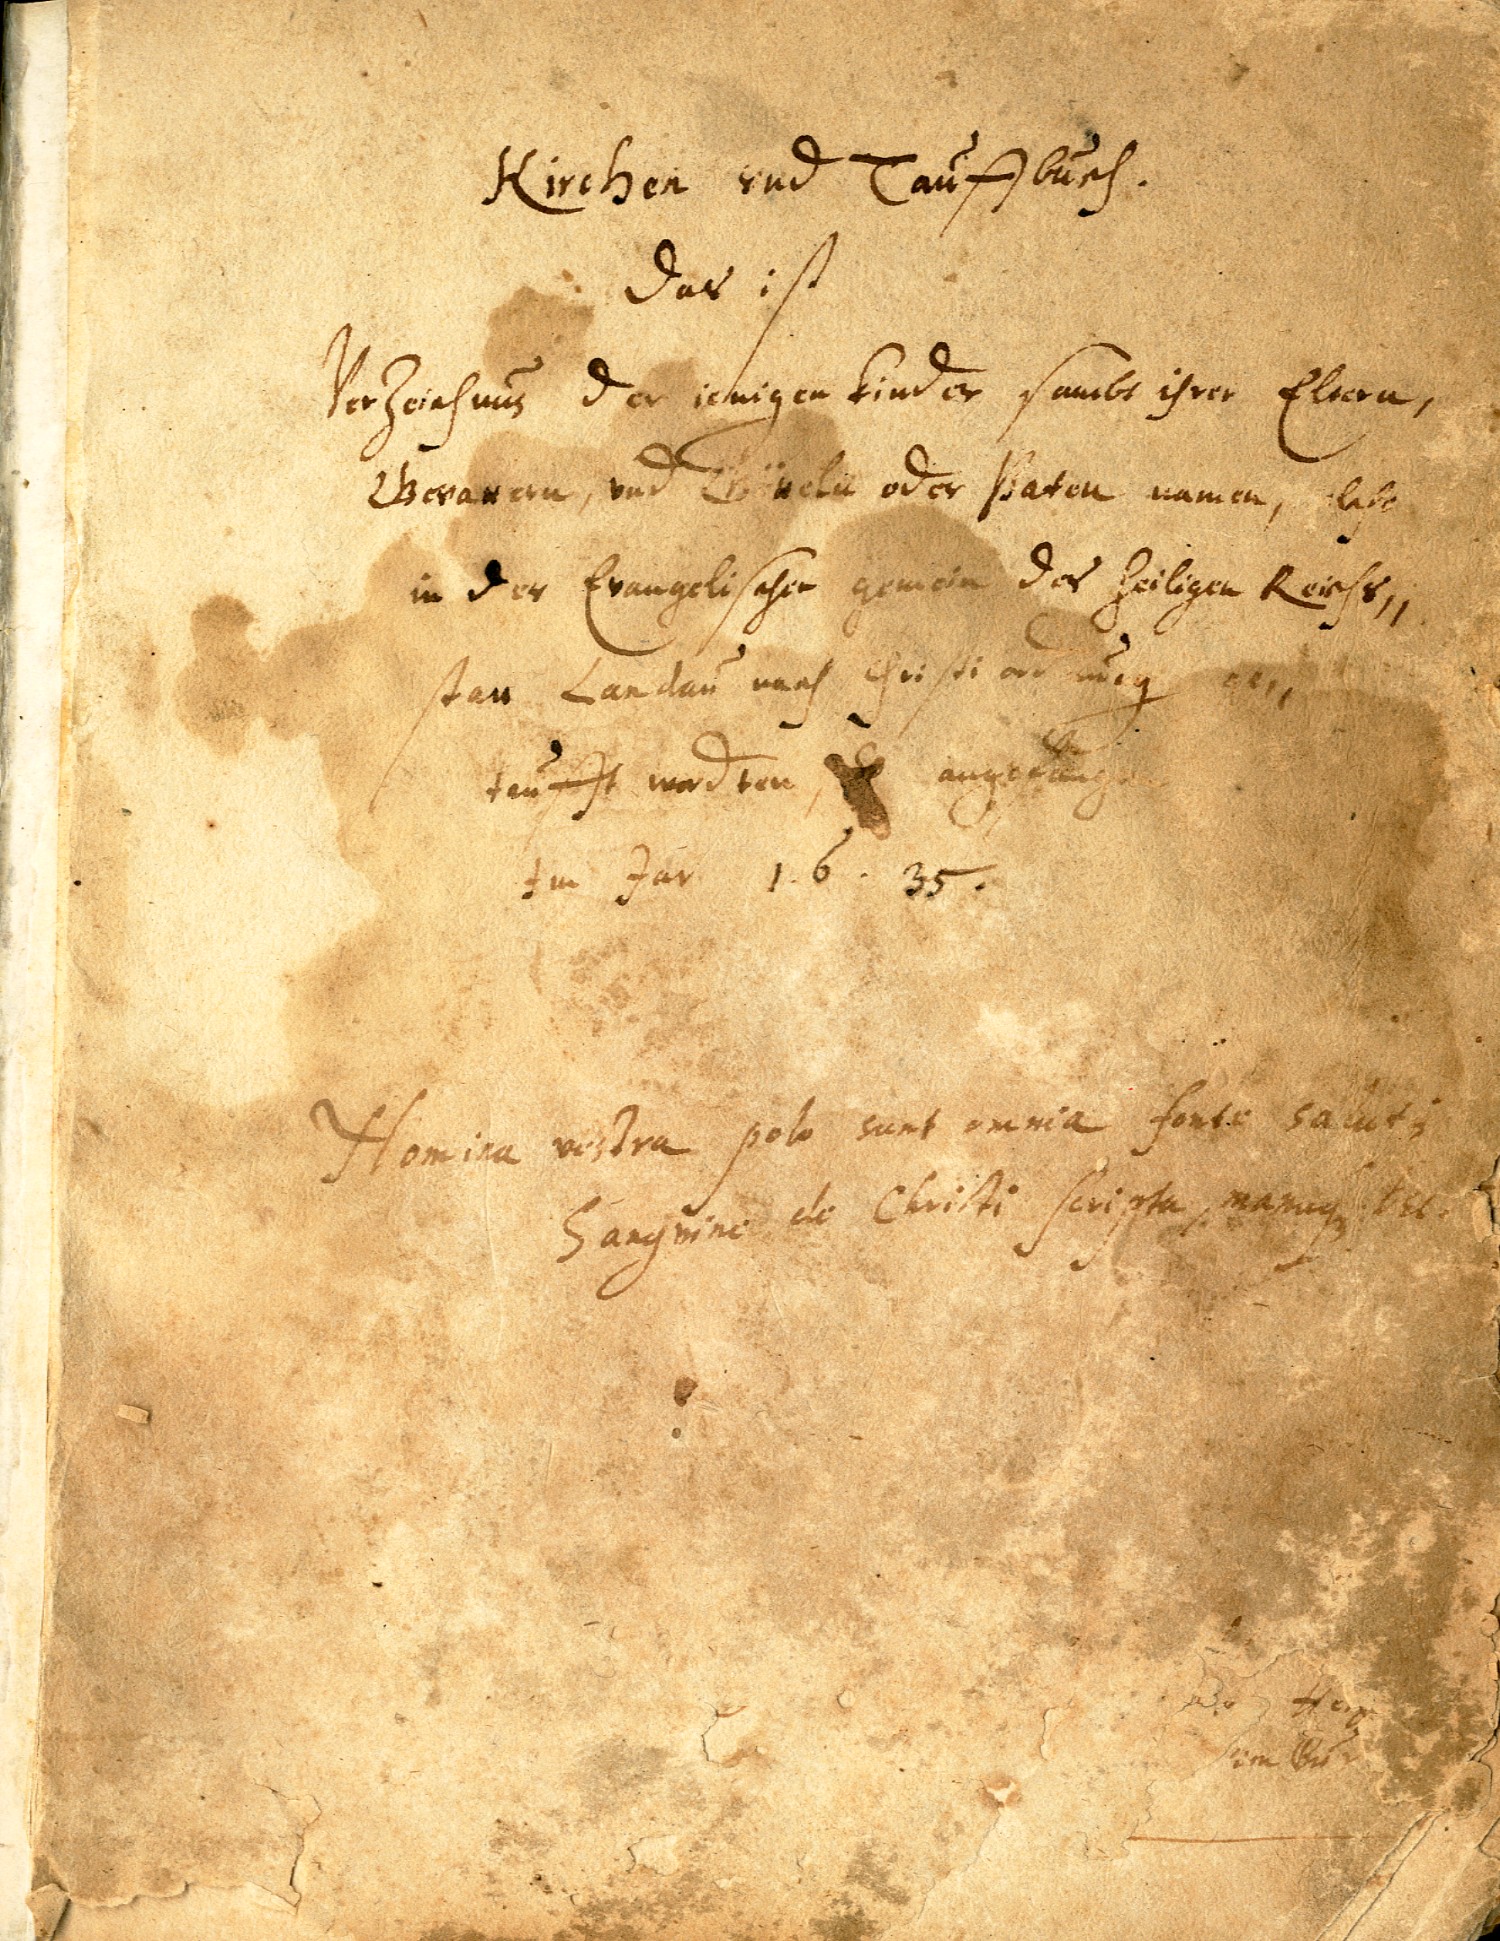 Kirchen vnd Tauffbuch.
Das ist
Verzeichnus der ienigen kinder sambt ihrer Eltern,
Gevattern, vnd Götteln oder Paten namen,
in der Evangelischen gemein des Heiligen Reichs,,
statt Landau nach Christi ordnung ge,,
taufft wordten, angefangen
Im Jar 1.6.35.
Nomina vestra polo sunt omnia fonte saluti
Sanguine de Christi scripta, manuque Dei.